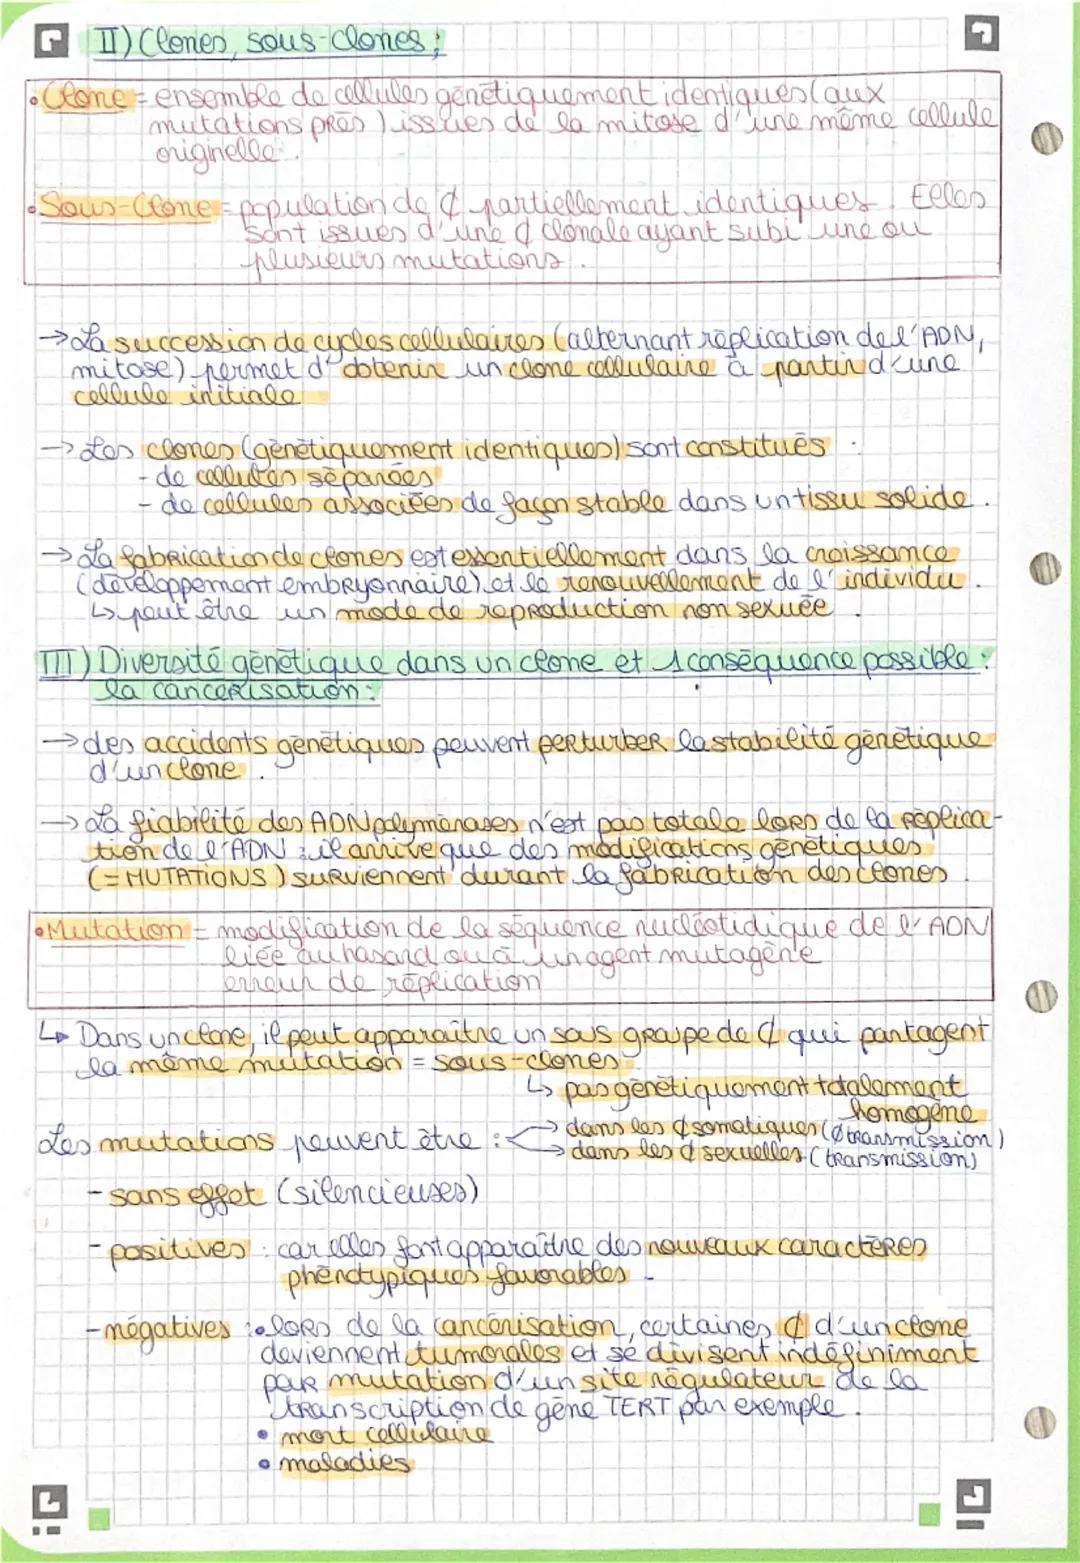 II) Clones, sous-clones :
• Clone = ensemble de cellules génétiquement identiques (aux
mutations près) issues de la mitose d'une même cellule
originelle.
• Sous-Clone = population de ₵ partiellement identiques. Elles
sont issues d'une ₵ clonale ayant subi une ou
plusieurs mutations.
→ La succession de cycles cellulaires (alternant réplication de l'ADN,
mitose) permet d'obtenir un clone cellulaire à partir d'une
cellule initiale
→ Les clones (génétiquement identiques) sont constitués :
- de cellules séparées
- de cellules associées de façon stable dans un tissu solide.
→ La fabrication de clones est essentiellement dans la croissance
(développement embryonnaire) et le renouvellement de l'individu.
↳ peut être un mode de reproduction non sexuée.
III) Diversité génétique dans un clone et 1 conséquence possible :
la cancérisation :
→ des accidents génétiques peuvent perturber la stabilité génétique
d'un clone.
→ La fiabilité des ADN polymérases n'est pas totale lors de la réplica-
tion de l'ADN : il arrive que des modifications génétiques
(= MUTATIONS) surviennent durant la fabrication des clones.
• Mutation = modification de la séquence nucléotidique de l'ADN
liée au hasard ou à un agent mutagène
erreur de réplication
↳ Dans un clone, il peut apparaître un sous groupe de ₵ qui partagent
la même mutation = sous-clones.
↳ pas génétiquement totalement
homogène
Les mutations peuvent être : → dans les ₵ somatiques (Ø transmission)
→ dans les ₵ sexuelles (transmission)
- sans effet (silencieuses)
- positives : car elles font apparaître des nouveaux caractères
phénotypiques favorables.
- négatives : • lors de la cancérisation, certaines ₵ d'un clone
deviennent tumorales et se divisent indéfiniment
par mutation d'un site régulateur de la
transcription de gène TERT par exemple.
• mort cellulaire
• maladies